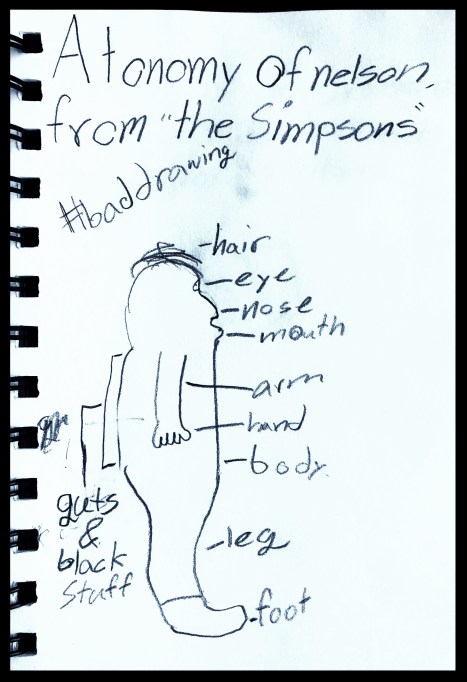 Atonomy Of nelson,
from "the Simpsons"
#baddrawing
hair
eye
nose
mouth
arm
hand
body
guts
&
black
stuff
leg
foot